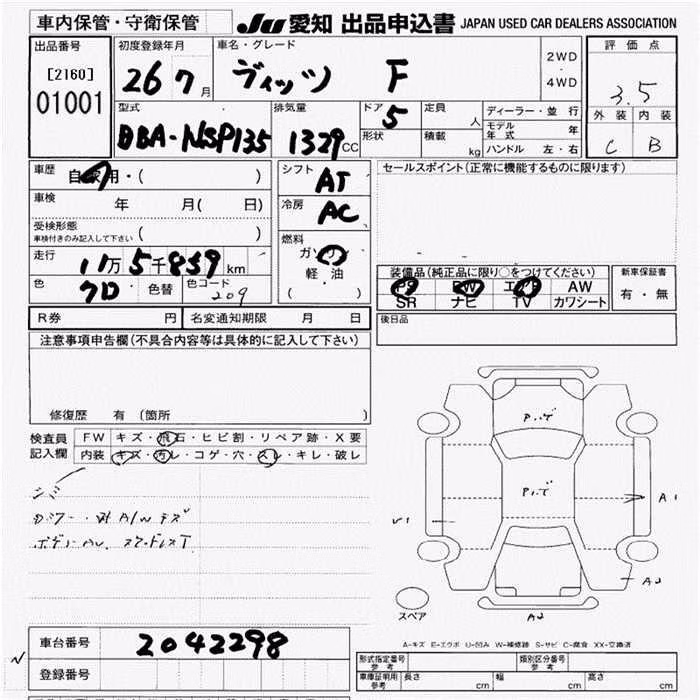 車内保管・守衛保管
JU 愛知 出品申込書 JAPAN USED CAR DEALERS ASSOCIATION
出品番号
[2160]
01001
初度登録年月
26 7月
車名・グレード
ヴィッツ F
2WD
・
4WD
評価点
3.5
外装 内装
C B
型式
DBA-NSP135
排気量
1329cc
ドア
5
形状
定員
人
積載
kg
ディーラー・並行
モデル年式 年
ハンドル 左・右
車歴
自家用・( )
車検
年 月( 日)
受検形態
車検付きのみ記入して下さい ( )
走行
11万5千859km
色
クロ ・色替
色コード
209
シフト
AT
冷房
AC
燃料
ガソリン
軽・油
( ・ )
セールスポイント(正常に機能するものに限ります)
装備品(純正品に限り○をつけてください)
PS PW エアB AW
SR ナビ TV カワシート
新車保証書
有・無
後日品
R券 円 名変通知期限 月 日
注意事項申告欄(不具合内容等は具体的に記入して下さい)
修復歴 有(箇所 )
検査員
記入欄
FW キズ・飛石・ヒビ割・リペア跡・X要
内装 キズ・汚レ・コゲ・穴・スレ・キレ・破レ
A1
A2
A2
スペア
A-キズ E-エクボ U-凹み W-補修跡 S-サビ C-腐食 XX-交換済
車台番号
2042298
登録番号
型式指定番号
参考
類別区分番号
参考
車庫証明用
参考
長さ cm 幅 cm 高さ cm